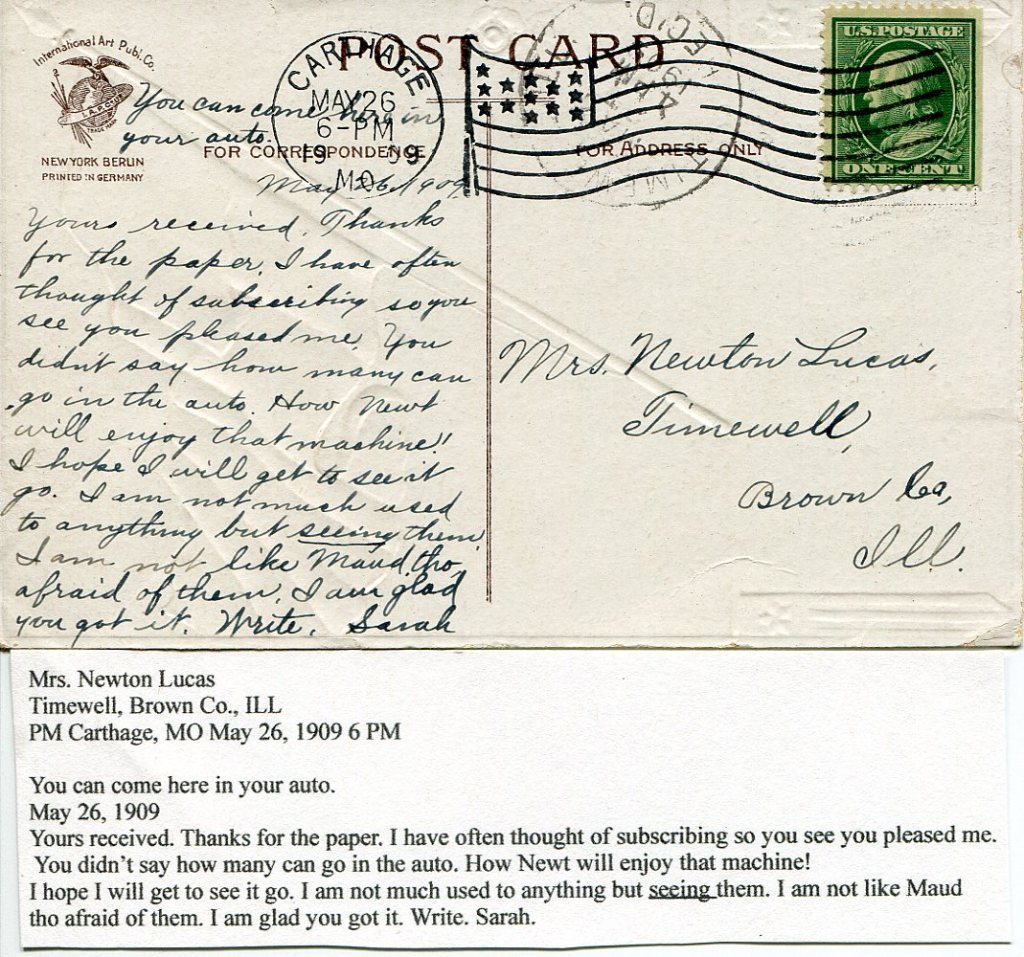 POST CARD
International Art Publ. Co.
NEW YORK BERLIN
PRINTED IN GERMANY
CARTHAGE
MAY 26
6-PM
1909
MO.
U.S. POSTAGE
ONE CENT
FOR CORRESPONDENCE
FOR ADDRESS ONLY
You can come here in
your auto.
May 26, 1909
Yours received. Thanks
for the paper. I have often
thought of subscribing so you
see you pleased me. You
didn't say how many can
go in the auto. How Newt
will enjoy that machine!
I hope I will get to see it
go. I am not much used
to anything but seeing them.
I am not like Maud, tho,
afraid of them. I am glad
you got it. Write. Sarah
Mrs. Newton Lucas,
Timewell,
Brown Co,
Ill.
Mrs. Newton Lucas
Timewell, Brown Co., ILL
PM Carthage, MO May 26, 1909 6 PM
You can come here in your auto.
May 26, 1909
Yours received. Thanks for the paper. I have often thought of subscribing so you see you pleased me.
You didn't say how many can go in the auto. How Newt will enjoy that machine!
I hope I will get to see it go. I am not much used to anything but seeing them. I am not like Maud
tho afraid of them. I am glad you got it. Write. Sarah.